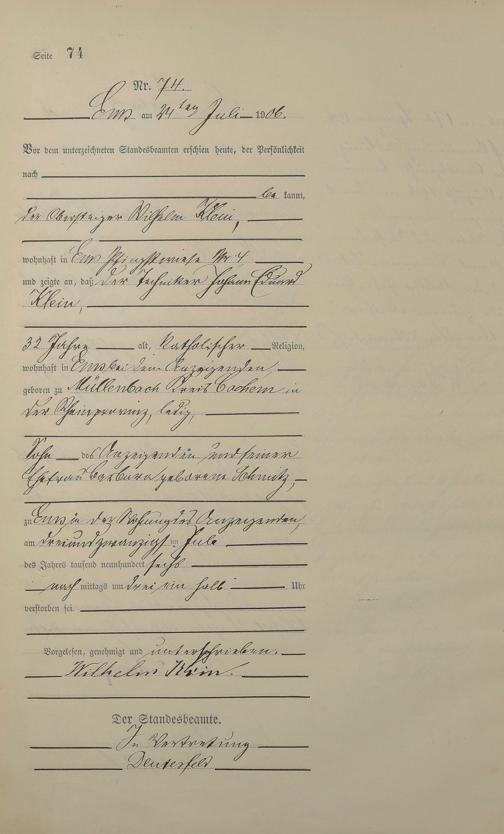 Seite 74
Nr. 74.
Ems am 24ten Juli 1906.
Vor dem unterzeichneten Standesbeamten erschien heute, der Persönlichkeit
nach
be kannt,
der Obersteiger Wilhelm Klein,
wohnhaft in Ems Nr 4
und zeigte an, daß der Techniker Johann Eduard
Klein,
32 Jahre alt, katholischer Religion,
wohnhaft in Ems bei dem Anzeigenden,
geboren zu Müllenbach Kreis Cochem in
der Rheinprovinz, ledig,
Sohn des Anzeigenden und seiner
Ehefrau Barbara geborene Schmitz,
zu Ems in der Wohnung des Anzeigenden,
am dreiundzwanzigst en Juli
des Jahres tausend neunhundert sechs
nach mittags um drei ein halb Uhr
verstorben sei.
Vorgelesen, genehmigt und unterschrieben.
Wilhelm Klein.
Der Standesbeamte.
In Vertretung